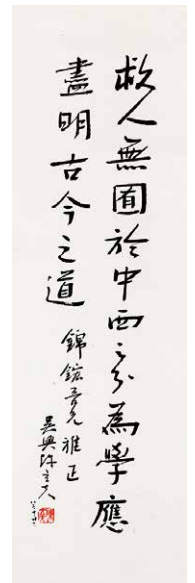 救人無囿於中西之分為學應
盡明古今之道
錦鋐吾兄雅正
吳興陳立夫